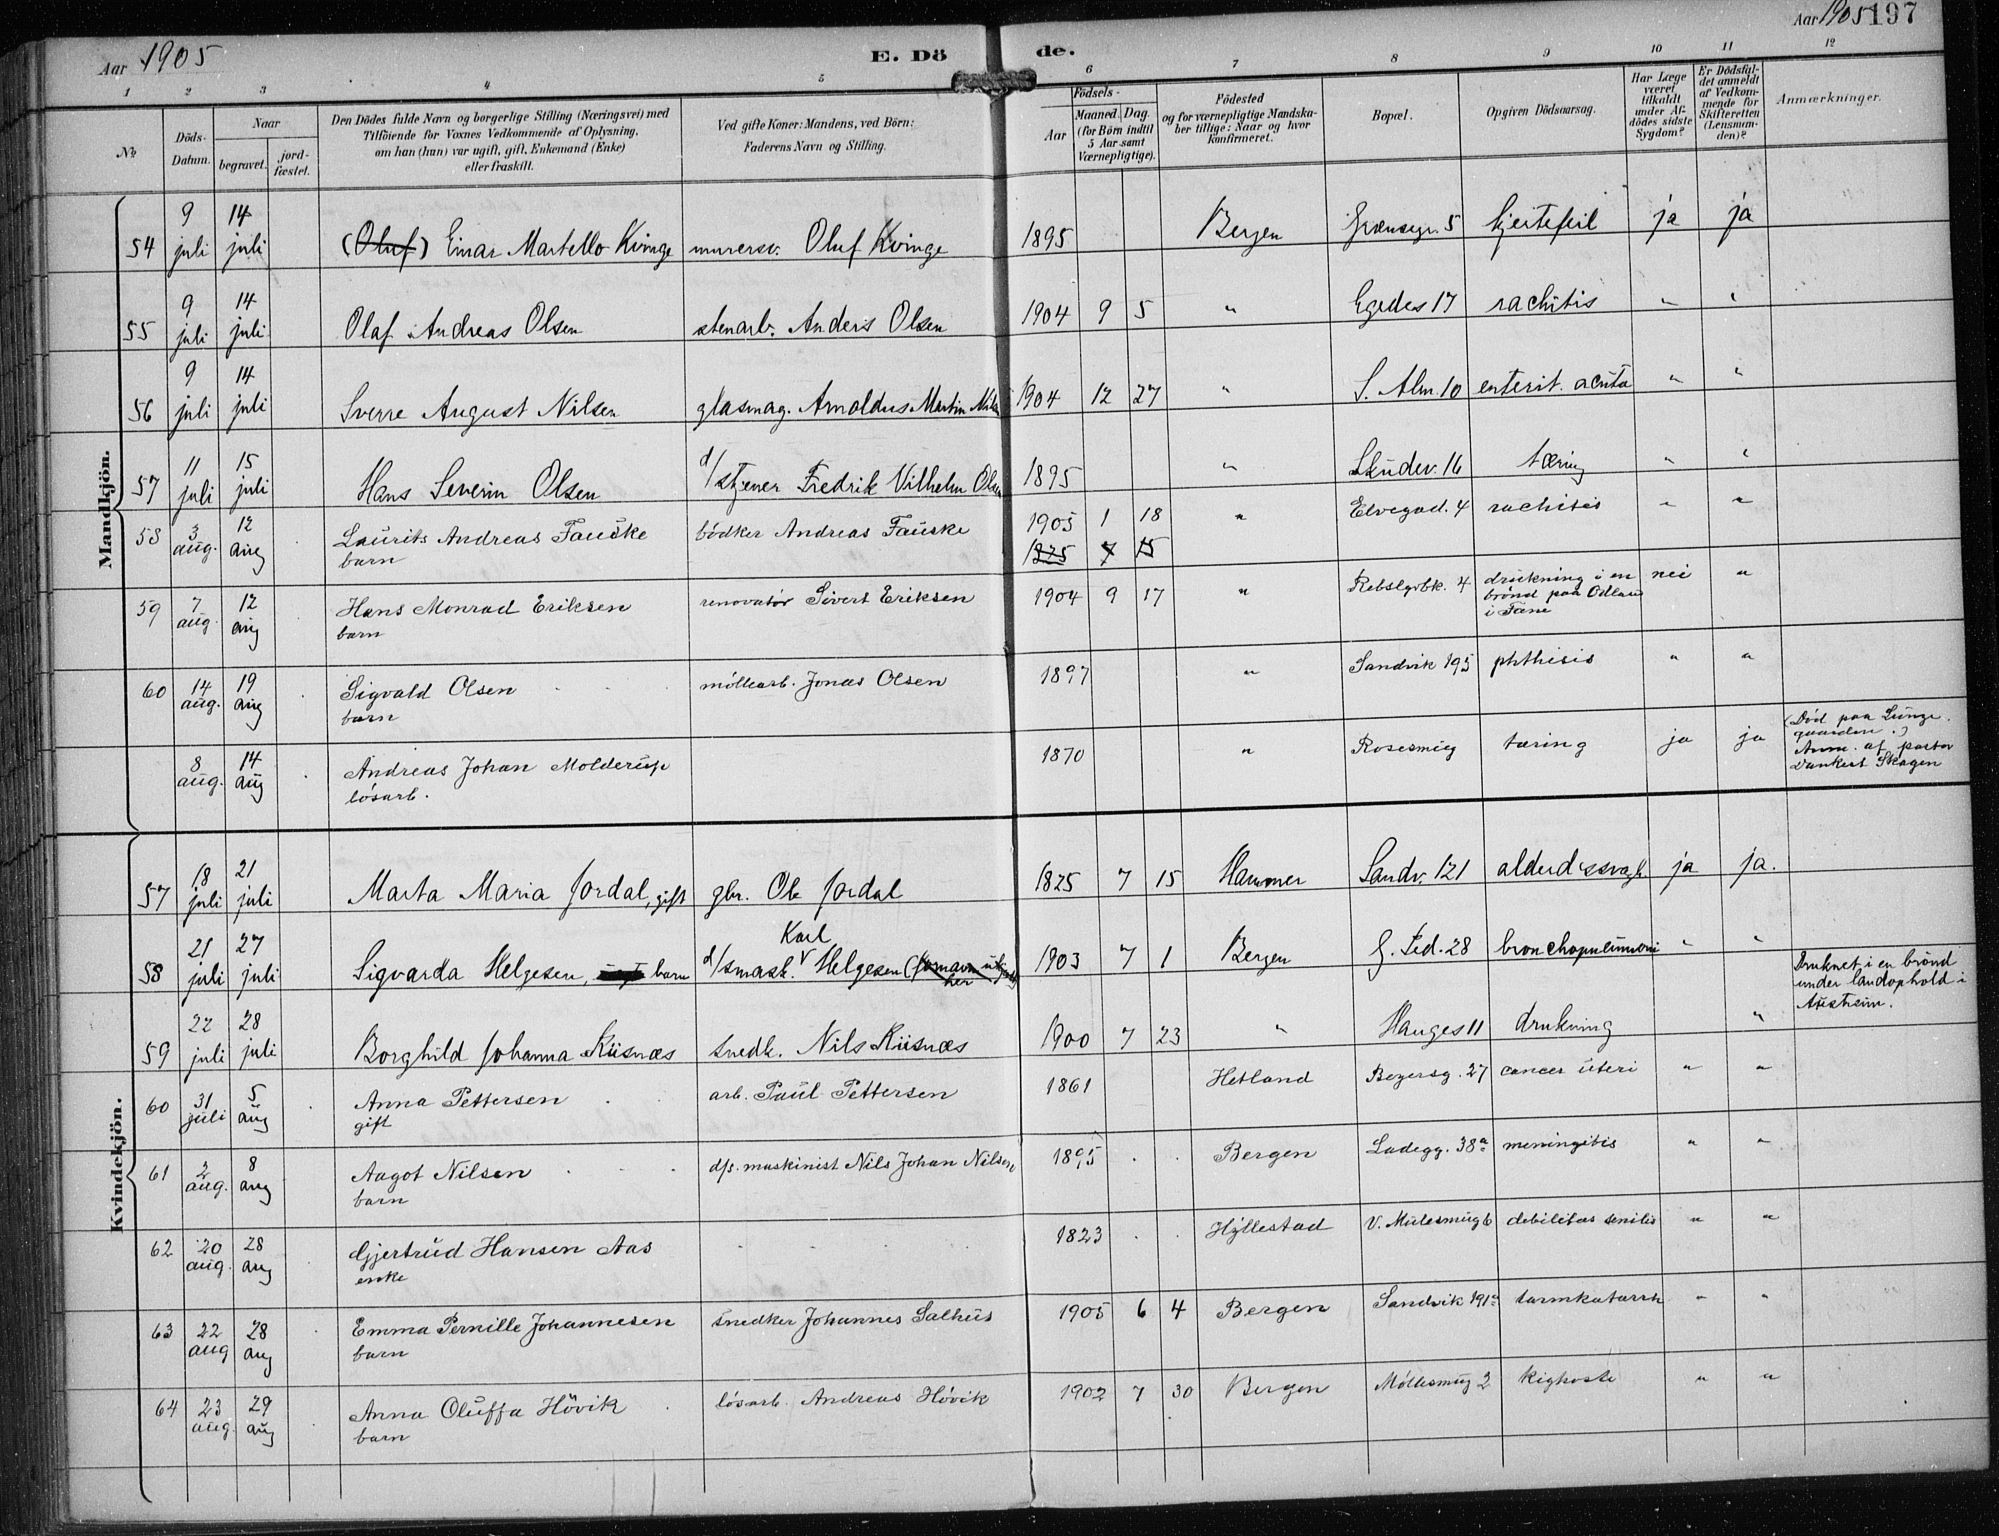 Aar 1905
E. Döde.
Aar 1905 197
1 2 3 4 5 6 7 8 9 10 11 12
No.
Döds-Datum.
Naar
begravet.
jord-fæstet.
Den Dödes fulde Navn og borgerlige Stilling (Næringsvei) med
Tilföiende for Voxnes Vedkommende af Oplysning,
om han (hun) var ugift, gift, Enkemand (Enke)
eller fraskilt.
Ved gifte Koner: Mandens, ved Börn:
Faderens Navn og Stilling.
Födsels-
Aar
Maaned. Dag.
(for Börn indtil
5 Aar samt
Værnepligtige).
Födested
og for værnepligtige Mandska-
ber tillige: Naar og hvor
Konfirmeret.
Bopæl.
Opgiven Dödsaarsag.
Har Læge
været
tilkaldt
under Af-
dödes sidste
Sygdom?
Er Dödsfal-
det anmeldt
af Vedkom-
mende for
Skifteretten
(Lensman-
den)?
Anmærkninger.
Mandkjön.
54 9 juli 14 juli (Oluf) Einar Martello Kvinge murersv. Oluf Kvinge 1895 Bergen Grænsegr. 5 hjertefeil ja ja
55 9 juli 14 juli Olaf Andreas Olsen stenarb. Anders Olsen 1904 9 5 " Egedes 17 rachitis " "
56 9 juli 14 juli Sverre August Nilsen glasmag. Arnoldus Martin Nilsen 1904 12 27 " S. Alm. 10 enterit. acuta " "
57 11 juli 15 juli Hans Severin Olsen d/stjener Fredrik Vilhelm Olsen 1895 " Skudev. 16 tæring " "
58 3 aug. 12 aug Laurits Andreas Fauske bödker Andreas Fauske 1905 1 18 " Elvegad. 4 rachitis " "
barn 1825 7 15
59 7 aug. 12 aug Hans Monrad Eriksen renovatör Sivert Eriksen 1904 9 17 " Rebslgrbk. 4 drukning i en nei "
barn brönd paa Odland
i Fane
60 14 aug. 19 aug Sigvald Olsen möllearb. Jonas Olsen 1897 " Sandvik 195 phthisis " "
barn
8 aug. 14 aug Andreas Johan Molderup 1870 " Rosesmug tæring ja ja (Död paa Lunge-
lösarb. gaarden.)
Anm. af pastor
Dankert Skagen
Kvindekjön.
57 18 juli 21 juli Marta Maria Jordal, gift gbr. Ole Jordal 1825 7 15 Hammer Sandv. 121 alderdssvagh. ja ja.
58 21 juli 27 juli Sigvarda Helgesen, barn d/smask. Karl Helgesen 1903 7 1 Bergen G. Sed. 28 bronchopneumoni " "
59 22 juli 28 juli Borghild Johanna Riisnæs snedk. Nils Riisnæs 1900 7 23 " Hauges 11 drukning " Druknet i en brönd
under landophold i
Austrheim.
60 31 juli 5 aug Anna Pettersen arb. Paul Pettersen 1861 Hetland Beyersg. 27 cancer uteri " "
gift
61 2 aug. 8 aug Aagot Nilsen d/s. maskinist Nils Johan Nilsen 1895 Bergen Ladegg. 38a meningitis " "
barn
62 20 aug. 28 aug Gjertrud Hansen Aas 1823 Hyllestad V. Mulesmug 6 debilitas senilis " "
enke
63 22 aug 28 aug Emma Pernille Johannesen snedker Johannes Salhus 1905 6 4 Bergen Sandvik 191a tarmkatarrh " "
barn
64 23 aug. 29 aug Anna Oluffa Hövik lösarb. Andreas Hövik 1902 7 30 Bergen Möllesmug 2 kighoste " "
barn